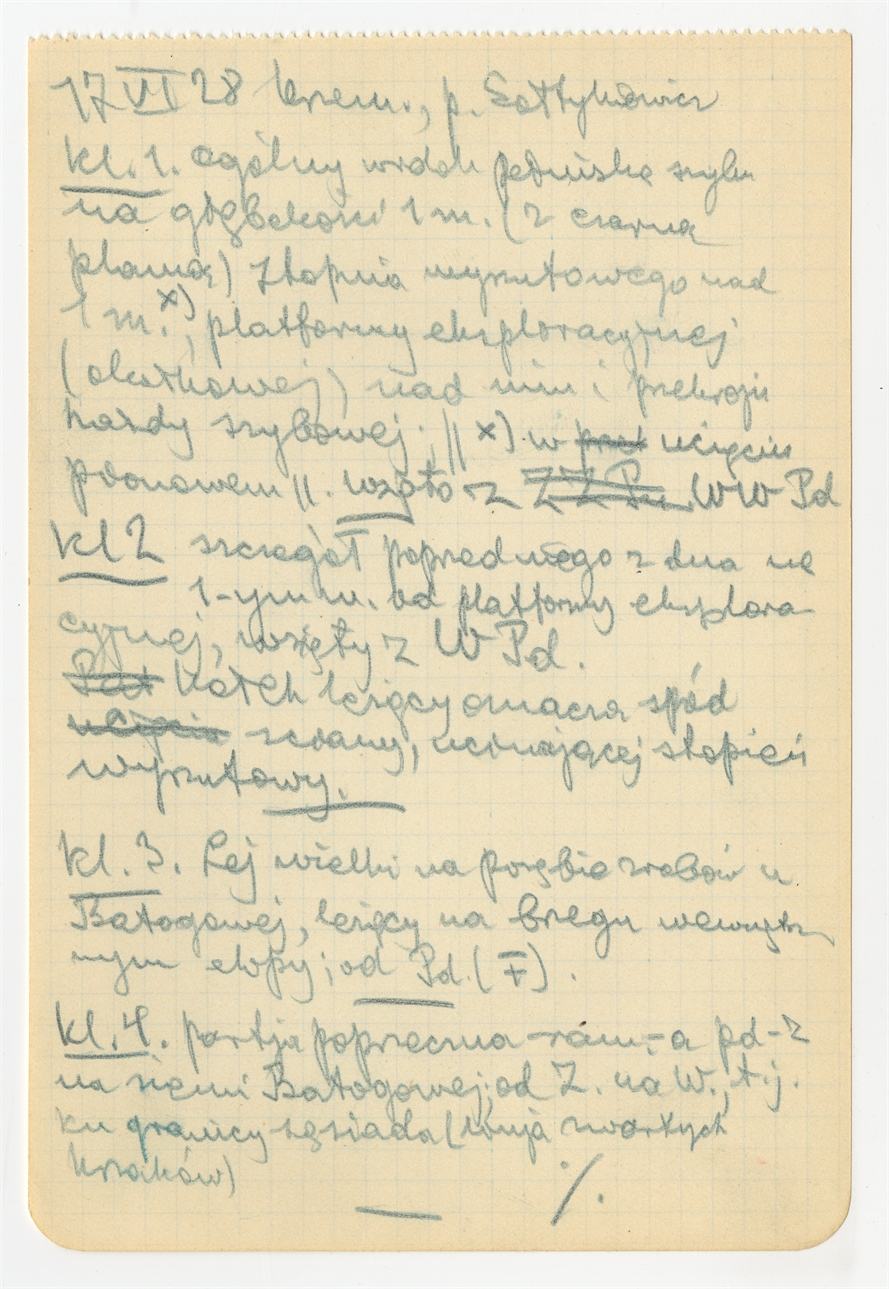 17 VI 28 krzem., p. Sołtykowicz
kl. 1. ogólny widok pośniska szybu
na głębokości 1 m. (z czarną
plamą) stopnia wyrzutowego nad
1 m. x), platformy eksploracyjnej
(okołkowej) nad nim i przekroju
hałdy szybowej. || x) w ucięciu
pionowem ||. wzięto z WW Pd
kl 2 szczegół poprzedniego z dna na
1-ym m. od platformy eksplora-
cyjnej, wzięty z W Pd.
kołek leżący oznacza spód
ściany, ucinającej stopień
wyrzutowy.
kl. 3. Lej wielki na porębie zrobów u
Batogowej, leżący na brzegu wewnętrz-
nym elipsy; od Pd. (F).
kl. 4. partja poprzeczna ram.-a pd-z
na ziemi Batogowej; od Z. na W., t.j.
ku granicy sąsiada (linja zwartych
krzaków)
%